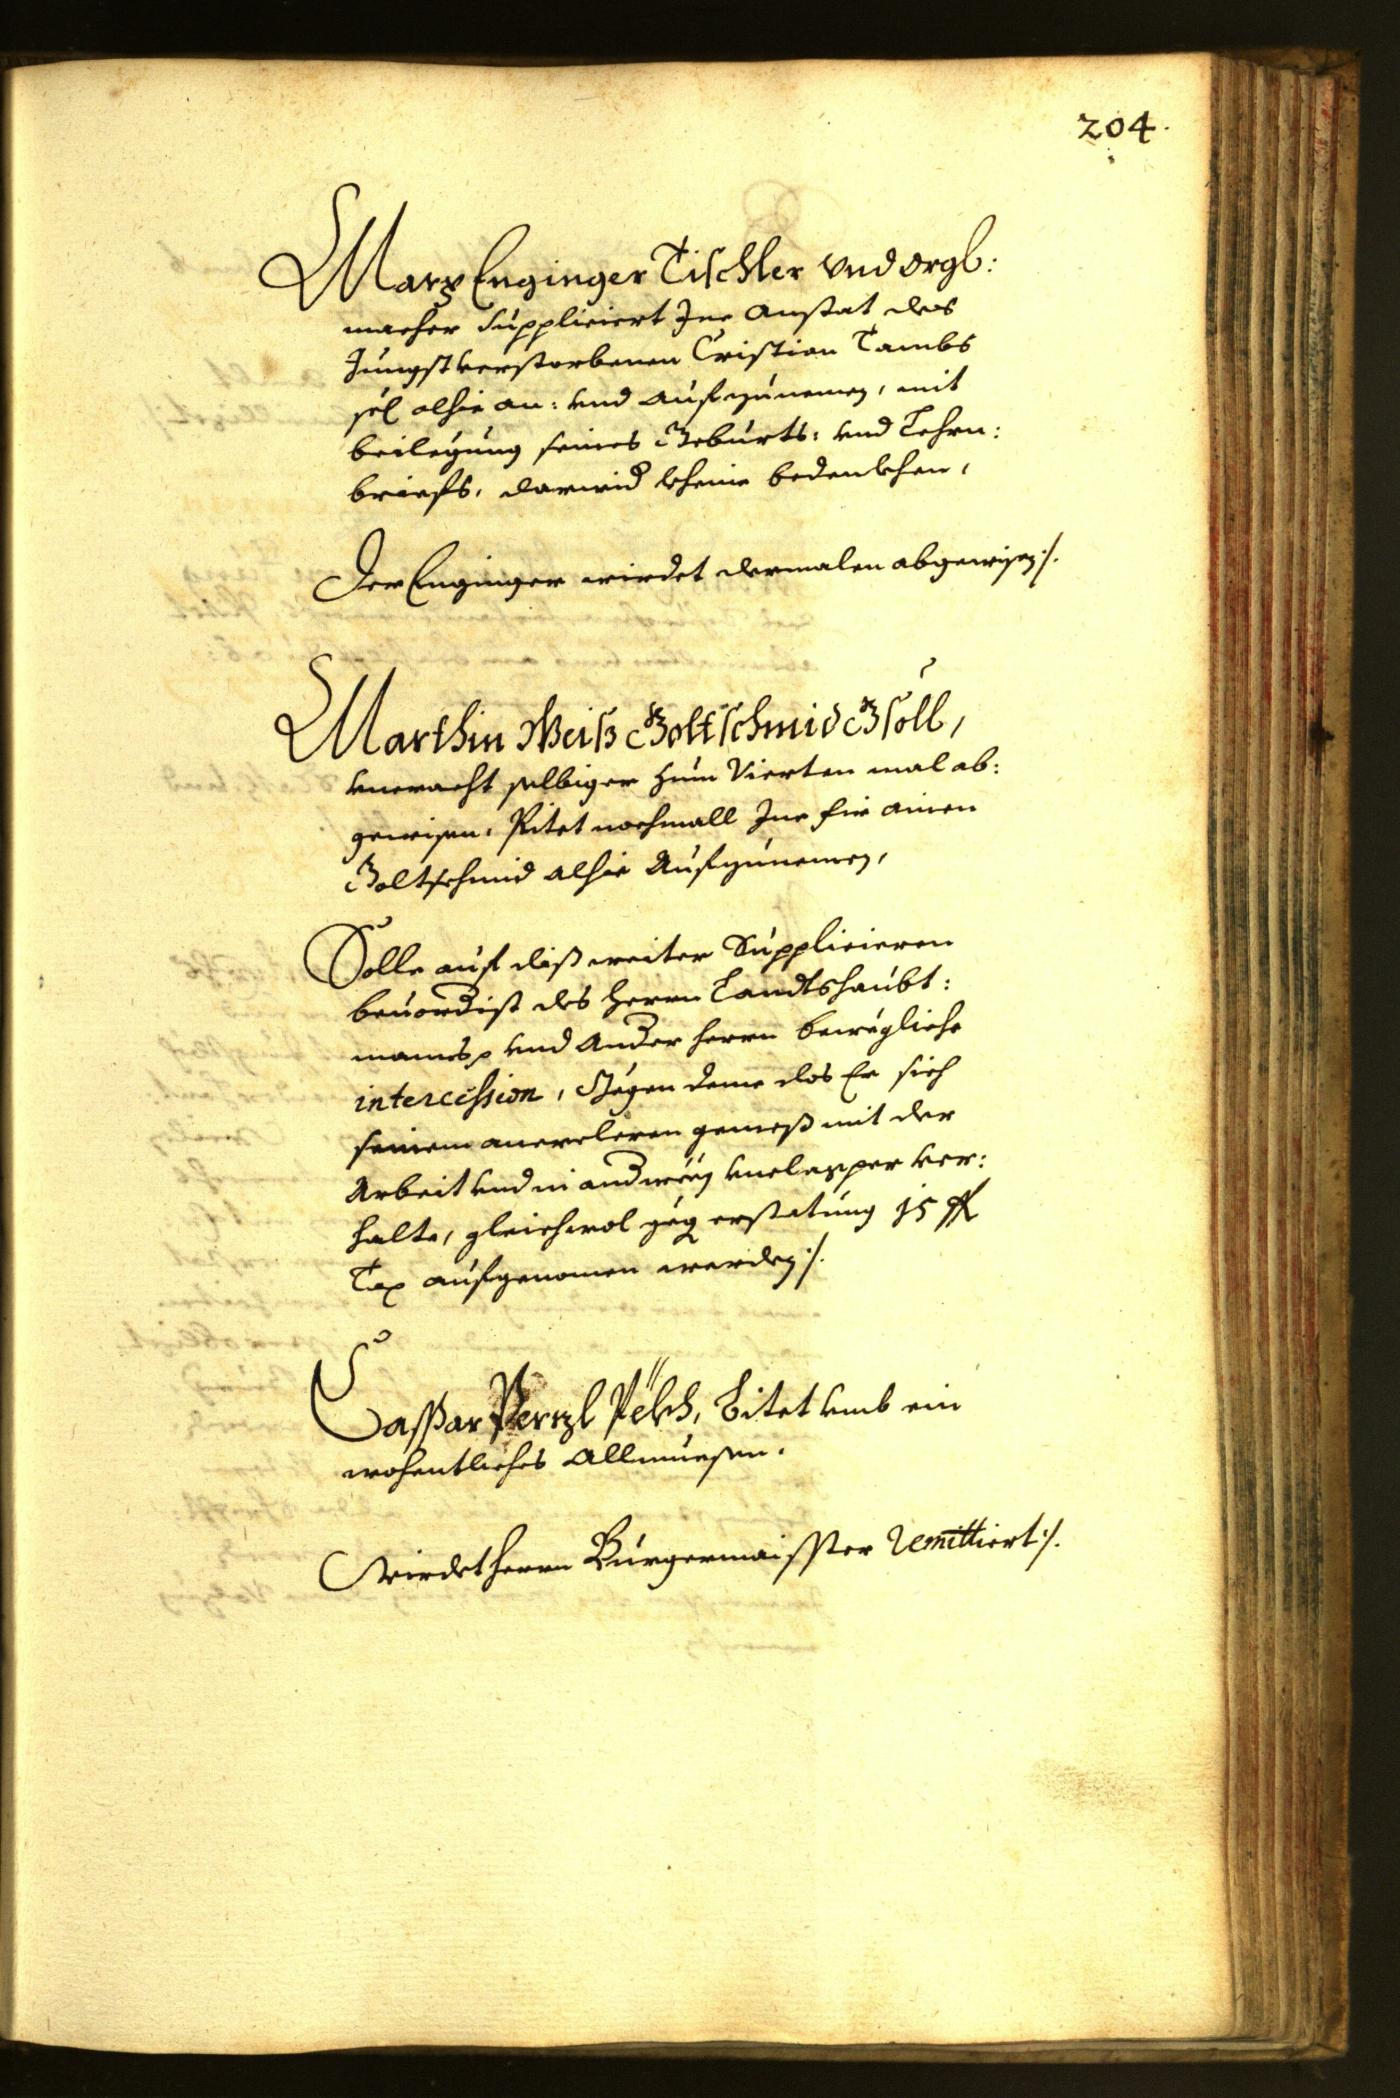 204.
Marx Enginger Tischler vnd orgl:
macher Suppliciert Ine Anstat des
Jungst verstorbenen Cristian Tambs
sel. alhie an: vnd Aufzunemen, mit
beilegung seines Geburts: vnd Lehrn:
briefs, darwid kheine bedenkhen,
Der Enginger wirdet dermalen abgewisen ./.
Marthin Weiß Goltschmid Gsöll,
vneracht selbiger zum Vierten mal ab:
gewisen, Pitet nochmall Ine für ainen
Goltschmid Alhie Aufzunemen,
Solle auf diß weiter Suppliciern
beuordist des Herrn Landtshaubt:
manns vnd Ander Herrn bewegliche
intercession, Gegen deme das Er sich
seinem anerclern gemeß mit der
Arbeit vnd in and weeg vnclagper ver:
halte, gleichwol geg erstatung 15 fl
Tax aufgenomen werden ./.
Casspar Perzl Pekh, Bitet vmb ein
wohentliches Allmuesen.
Wirdet Herrn Burgermaisster Remittiert ./.